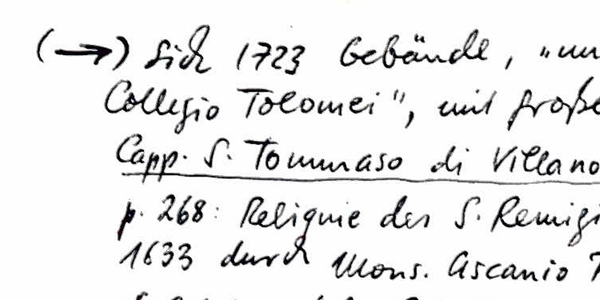 (→) Sich 1723 Gebäude, "un
Collegio Tolomei", mit große
Capp. S. Tommaso di Villano
p. 268: Reliquie der S. Remigi
1633 durch Mons. Ascanio